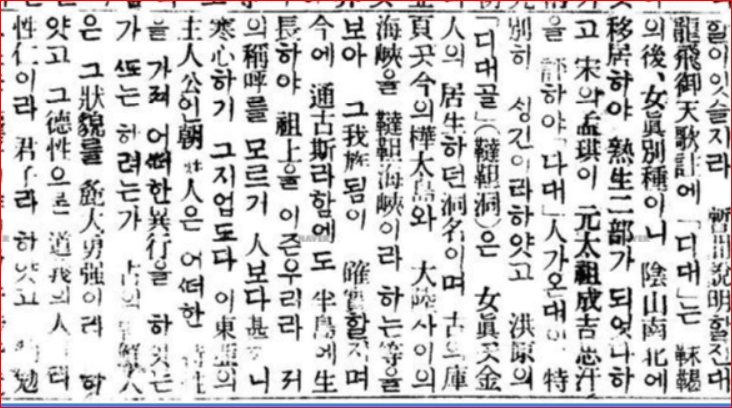 할이잇슬지라 暫間說明할진대
龍飛御天歌註에「디대」는 靺鞨
의後、女眞別種이니 陰山南北에
移居하야 熟生二部가 되엿나하
고 宋의孟珙이 元太祖成吉思汗
을 하야「다대」人가온대 特
別히 성긴이라하얏고 洪原의
「디대골」(韃靼洞)은 女眞天金
人의 居生하던洞名이며 古의庫
頁곳今의樺太島와 大陸사이의
海峽을 韃靼海峽이라 하는等을
보아 그我族됨이 確實할지며
今에 通古斯라함에도 半島에生
長하야 祖上을 이즌우리라 저
의稱呼를 모르기 人보다甚 니
寒心하기 그지업도다 이東 의
主人公인朝 人은 어떠한 性
을 가저 어떠한異行을 하엿는
가 또는 하려는가 古의 人
은 그狀貌를 麁大勇强이라 하
얏고 그德性으론 道義의人
性仁이라 君子라 하얏고 勉